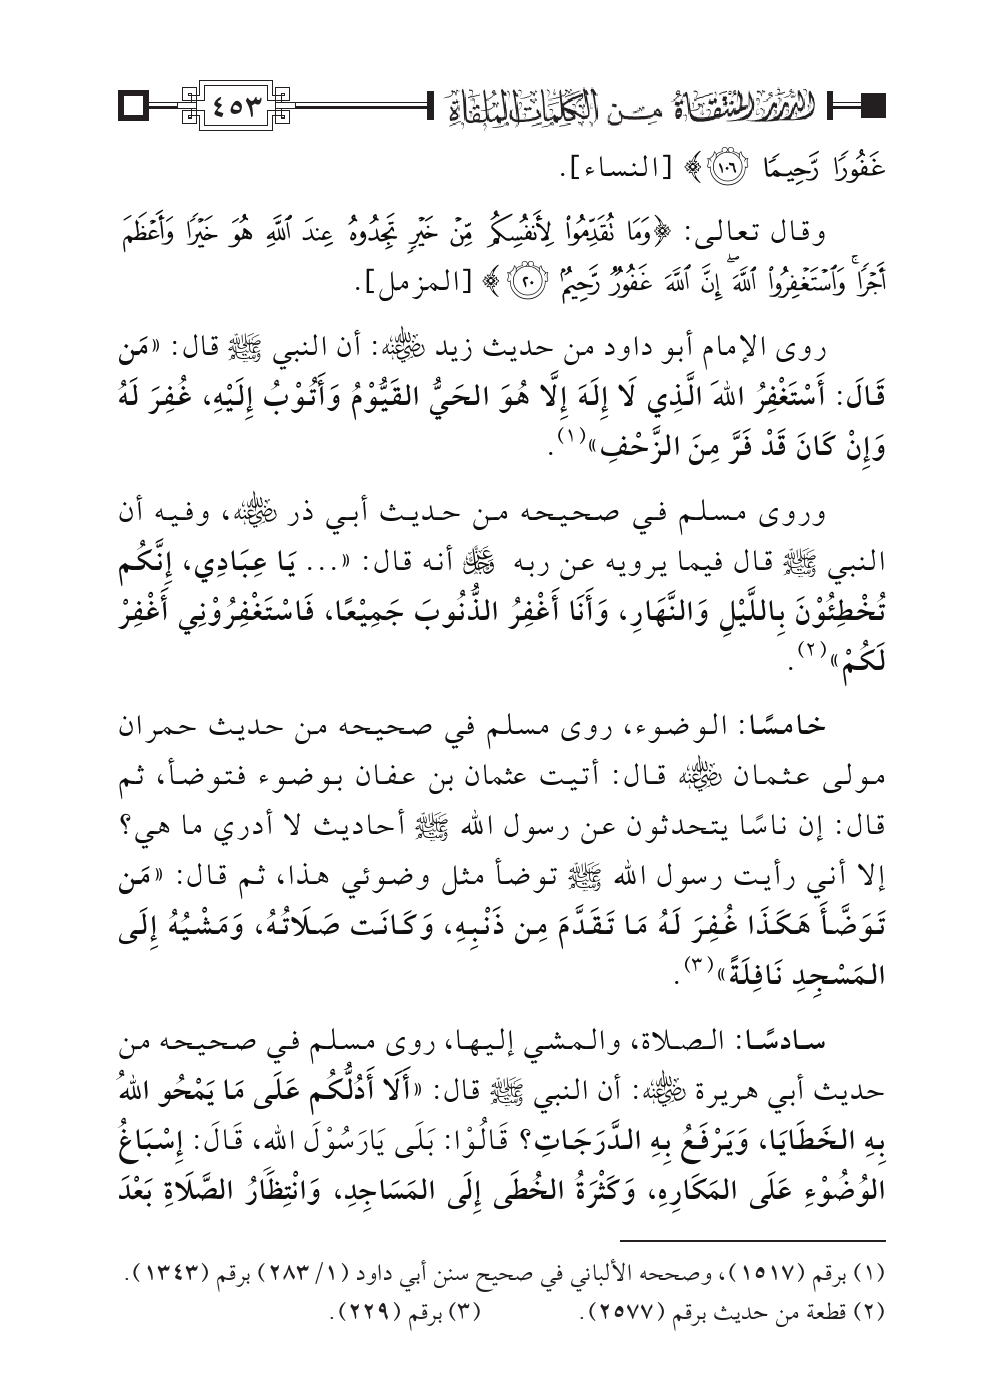 الدرر المنتقاة من الكلمات الملقاة ٤٥٣
غَفُورًا رَّحِيمًا ۝١٠٦﴾ [النساء].
وقال تعالى: ﴿وَمَا تُقَدِّمُوا۟ لِأَنفُسِكُم مِّنْ خَيْرٍ تَجِدُوهُ عِندَ ٱللَّهِ هُوَ خَيْرًا وَأَعْظَمَ
أَجْرًا ۚ وَٱسْتَغْفِرُوا۟ ٱللَّهَ ۖ إِنَّ ٱللَّهَ غَفُورٌ رَّحِيمٌ ۝٢٠﴾ [المزمل].
روى الإمام أبو داود من حديث زيد رضي الله عنه: أن النبي ﷺ قال: «مَن
قَالَ: أَسْتَغْفِرُ اللهَ الَّذِي لَا إِلَهَ إِلَّا هُوَ الحَيُّ القَيُّوْمُ وَأَتُوْبُ إِلَيْهِ، غُفِرَ لَهُ
وَإِنْ كَانَ قَدْ فَرَّ مِنَ الزَّحْفِ»(١).
وروى مسلم في صحيحه من حديث أبي ذر رضي الله عنه، وفيه أن
النبي ﷺ قال فيما يرويه عن ربه عز وجل أنه قال: «... يَا عِبَادِي، إِنَّكُم
تُخْطِئُوْنَ بِاللَّيْلِ وَالنَّهَارِ، وَأَنَا أَغْفِرُ الذُّنُوبَ جَمِيْعًا، فَاسْتَغْفِرُوْنِي أَغْفِرْ
لَكُمْ»(٢).
خامسًا: الوضوء، روى مسلم في صحيحه من حديث حمران
مولى عثمان رضي الله عنه قال: أتيت عثمان بن عفان بوضوء فتوضأ، ثم
قال: إن ناسًا يتحدثون عن رسول الله ﷺ أحاديث لا أدري ما هي؟
إلا أني رأيت رسول الله ﷺ توضأ مثل وضوئي هذا، ثم قال: «مَن
تَوَضَّأَ هَكَذَا غُفِرَ لَهُ مَا تَقَدَّمَ مِن ذَنْبِهِ، وَكَانَت صَلَاتُهُ، وَمَشْيُهُ إِلَى
المَسْجِدِ نَافِلَةً»(٣).
سادسًا: الصلاة، والمشي إليها، روى مسلم في صحيحه من
حديث أبي هريرة رضي الله عنه: أن النبي ﷺ قال: «أَلَا أَدُلُّكُم عَلَى مَا يَمْحُو اللهُ
بِهِ الخَطَايَا، وَيَرْفَعُ بِهِ الدَّرَجَاتِ؟ قَالُوْا: بَلَى يَارَسُوْلَ اللهِ، قَالَ: إِسْبَاغُ
الوُضُوْءِ عَلَى المَكَارِهِ، وَكَثْرَةُ الخُطَى إِلَى المَسَاجِدِ، وَانْتِظَارُ الصَّلَاةِ بَعْدَ
(١) برقم (١٥١٧)، وصححه الألباني في صحيح سنن أبي داود (١/ ٢٨٣) برقم (١٣٤٣).
(٢) قطعة من حديث برقم (٢٥٧٧). (٣) برقم (٢٢٩).